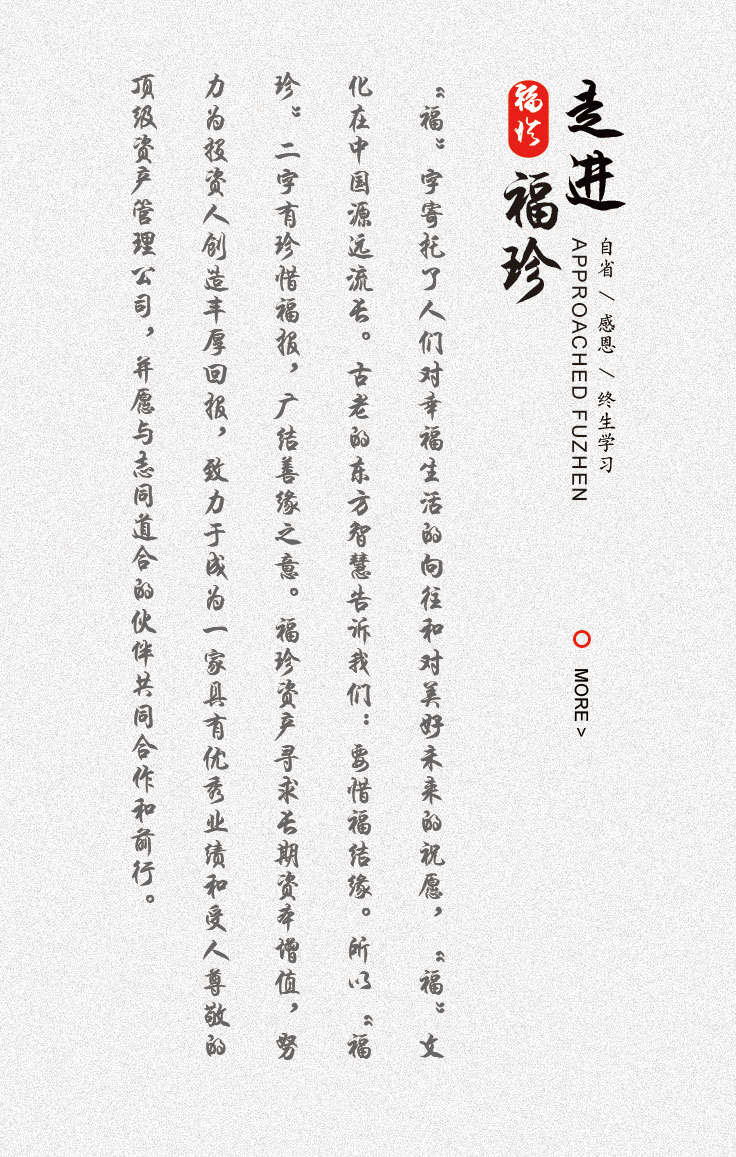 走进
福珍
福珍
自省 / 感恩 / 终生学习
APPROACHED FUZHEN
MORE >
“福”字寄托了人们对幸福生活的向往和对美好未来的祝愿，“福”文
化在中国源远流长。古老的东方智慧告诉我们：要惜福结缘。所以“福
珍”二字有珍惜福报，广结善缘之意。福珍资产寻求长期资本增值，努
力为投资人创造丰厚回报，致力于成为一家具有优秀业绩和受人尊敬的
顶级资产管理公司，并愿与志同道合的伙伴共同合作和前行。